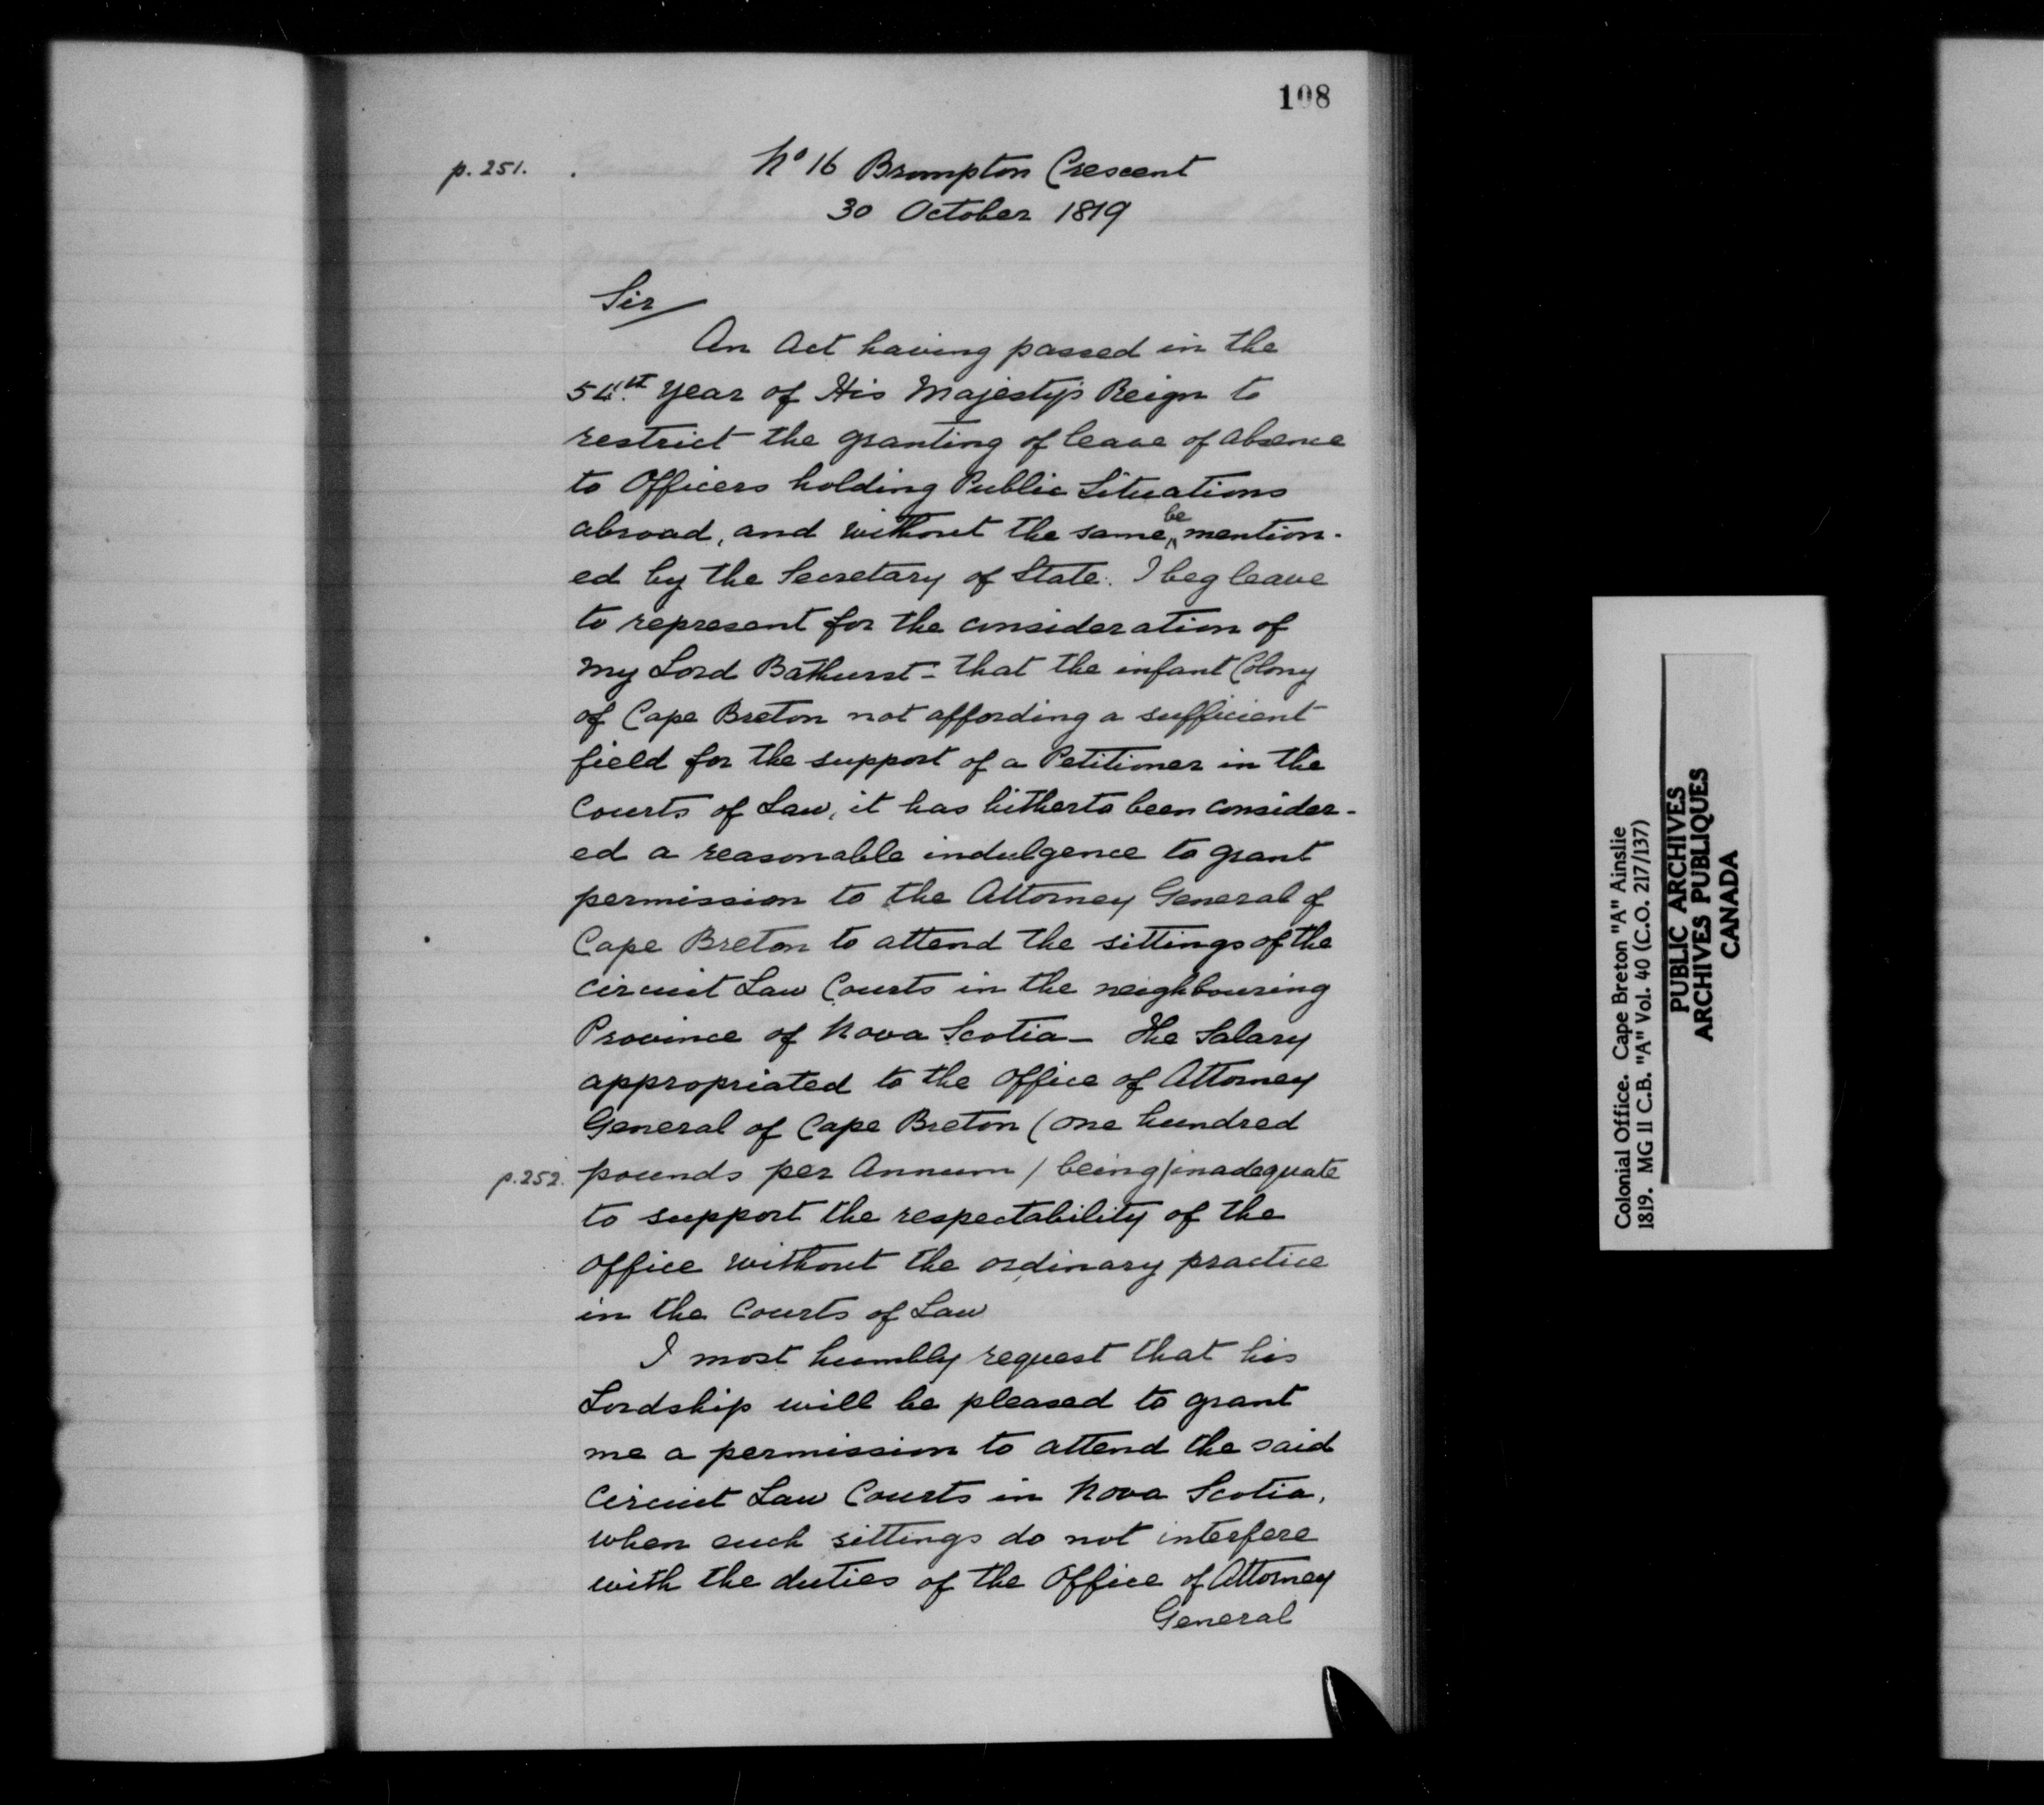 108
p. 251.
No 16 Brompton Crescent
30 October 1819
Sir
An Act having passed in the
54th year of His Majesty's Reign to
restrict the granting of leave of absence
to Officers holding Public Situations
abroad, and without the same be mention-
ed by the Secretary of State. I beg leave
to represent for the consideration of
my Lord Bathurst - that the infant Colony
of Cape Breton not affording a sufficient
field for the support of a Petitioner in the
Courts of Law, it has hitherto been consider-
ed a reasonable indulgence to grant
permission to the Attorney General of
Cape Breton to attend the sittings of the
circuit Law Courts in the neighbouring
Province of Nova Scotia - The Salary
appropriated to the office of Attorney
General of Cape Breton (one hundred
p. 252. pounds per Annum / being/inadequate
to support the respectability of the
office without the ordinary practice
in the Courts of Law
I most humbly request that his
Lordship will be pleased to grant
me a permission to attend the said
Circuit Law Courts in Nova Scotia,
when such sittings do not interfere
with the duties of the Office of Attorney
General
Colonial Office. Cape Breton "A" Ainslie
1819. MG 11 C.B. "A" Vol. 40 (C.O. 217/137)
PUBLIC ARCHIVES
ARCHIVES PUBLIQUES
CANADA